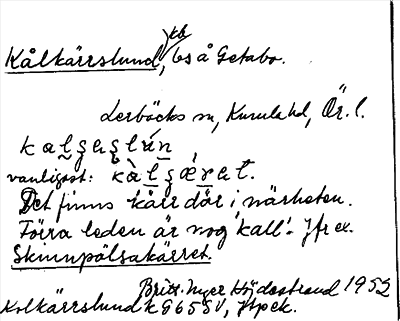 Kålkärrslund, tb
bs å Getabo.
Lerböcks sn, Kumla hd, Ör. l.
kalʂaʂlán
vanligast: kàlʂǽrat.
Det finns kärr där i närheten.
Förra leden är nog 'kall'. Jfr ex.
Skinnpölsakärret.
Britt. Inger Höjdestrand 1952
Kolkärrslund k G65SV, Htpek.